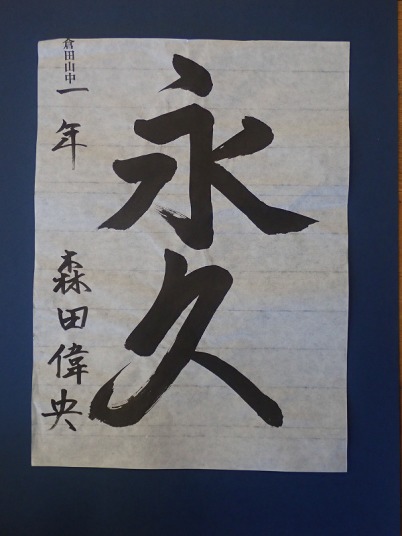 永久
倉田山中
一年 森田偉央